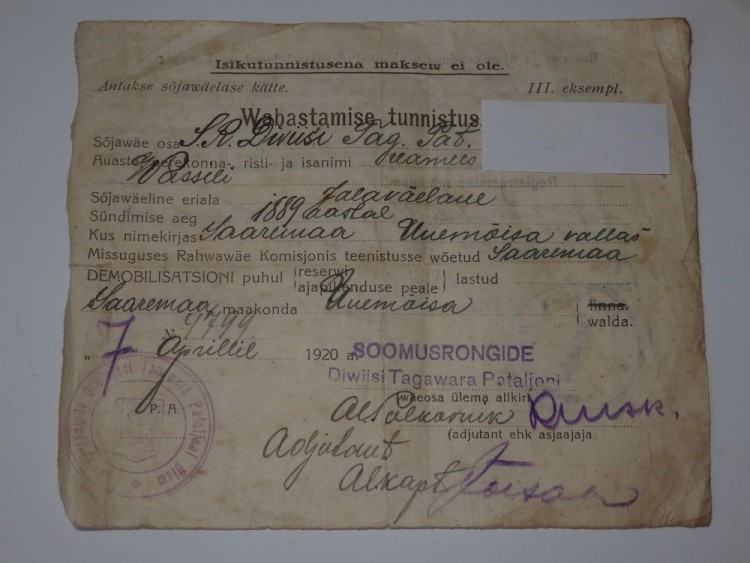 Isikutunnistusena maksew ei ole.
Antakse sõjawäelase kätte. III. eksempl.
Wabastamise tunnistus
Sõjawäe osa S. R. Diviisi Tag. Pat.
Auaste, perekonna-, risti- ja isanimi reamees
Wassili
Sõjawäeline eriala Jalaväelane
Sündimise aeg 1889 aastal
Kus nimekirjas Saaremaa Uuemõisa vallas
Missuguses Rahwawäe Komisjonis teenistusse wõetud Saaremaa
DEMOBILISATSIONI puhul (reserwi ajapikenduse peale) lastud
Saaremaa maakonda Uuemõisa linna. walda.
№ 4799
„ 7 Aprillil 1920 a.
SOOMUSRONGIDE
Diwiisi Tagawara Pataljoni
P. A.
(wäeosa ülema allkiri
Alpolkovnik
(adjutant ehk asjaajaja
Adjutant
Alkapt.